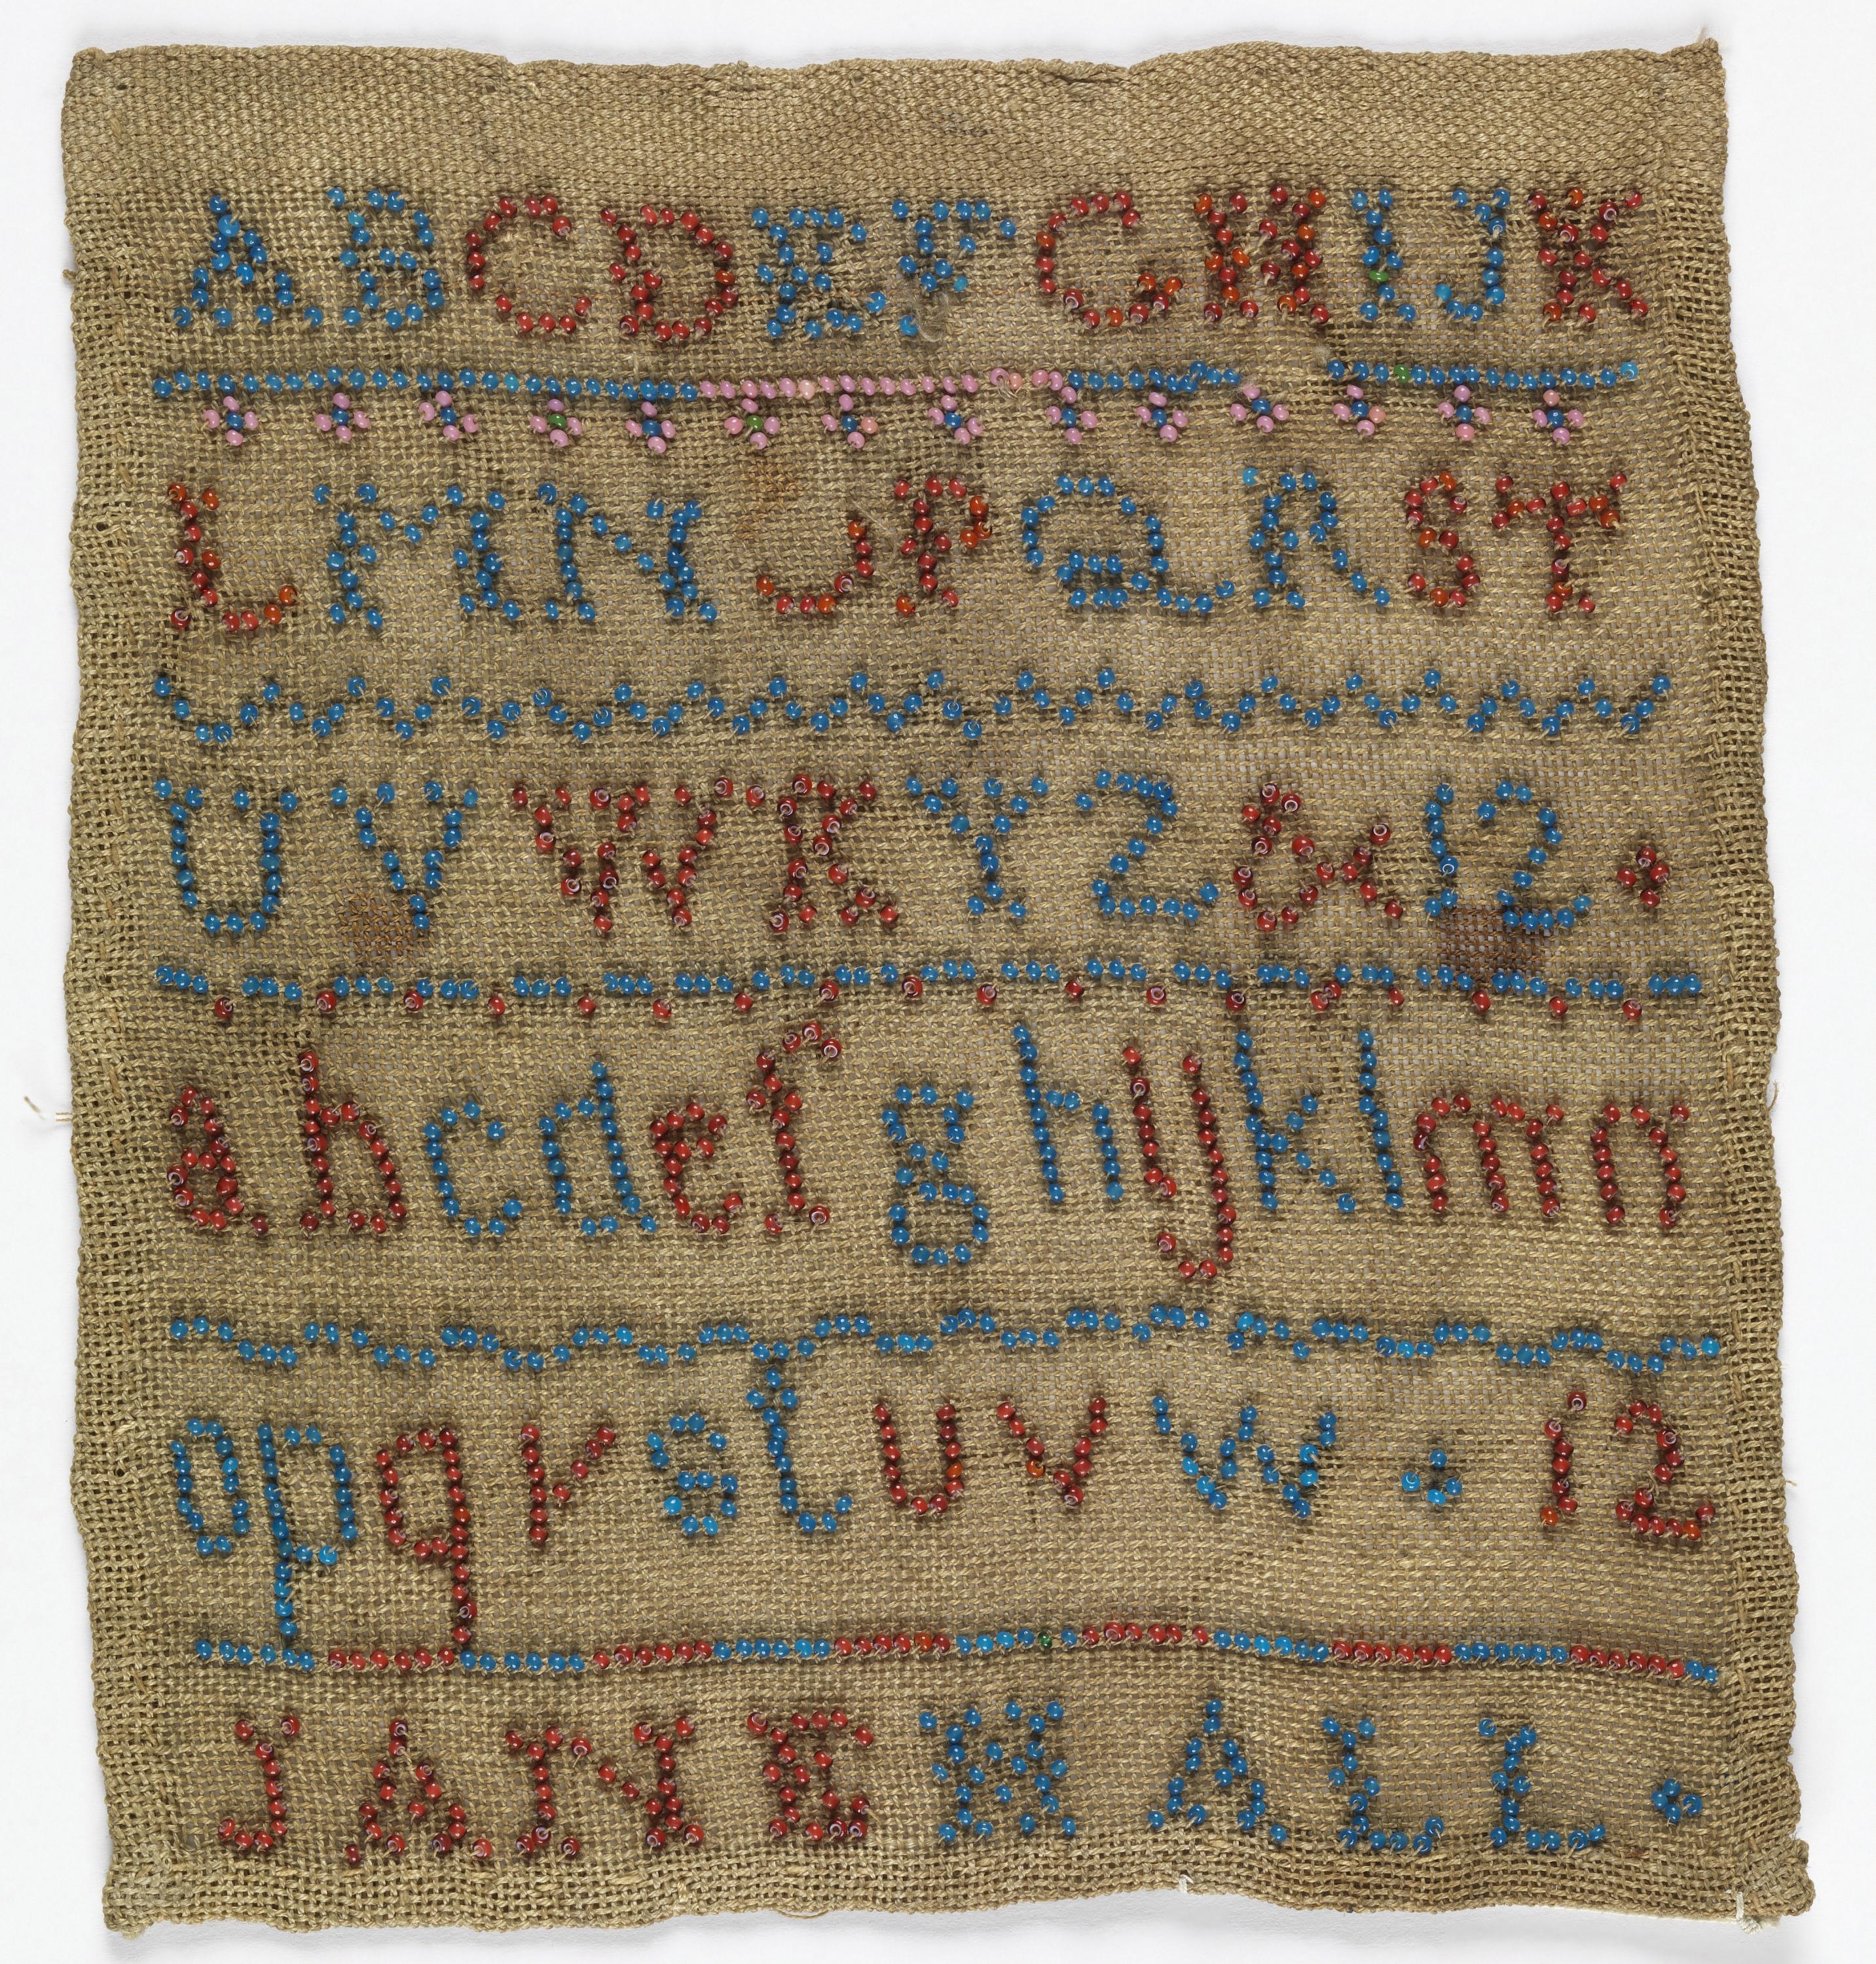 ABCDEFGHIJK
LMNOPQRST
UVWXYZ&12.
abcdefghijklmn
opqrstuvw.12
JANE HALL.